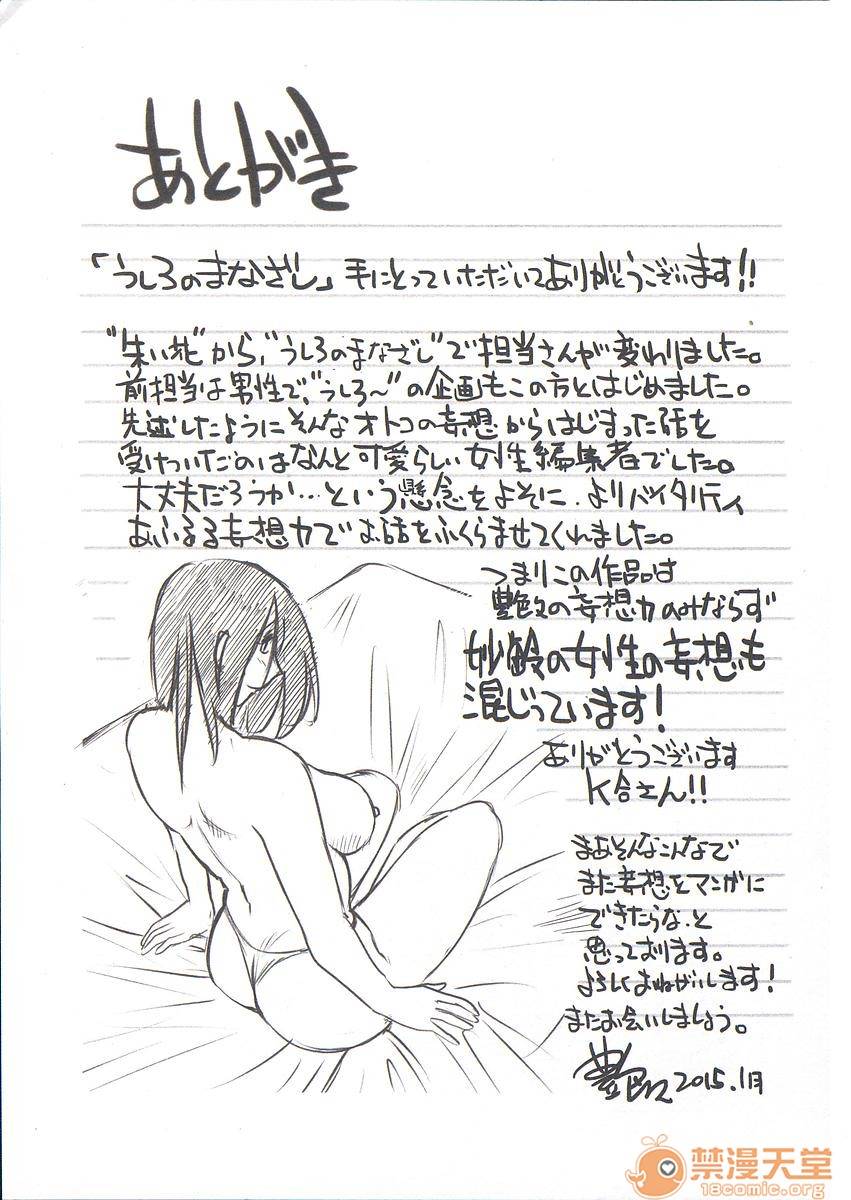 あとがき
「うしろのまなざし」手にとっていただいてありがとうございます!!
"朱い花"から、"うしろのまなざし"で担当さんが変わりました。
前担当は男性で、"うしろ〜"の企画もこの方とはじめました。
先述したようにそんなオトコの妄想からはじまった話を
受けついだのはなんと可愛らしい女性編集者でした。
大丈夫だろうか…という懸念をよそに、よりバイタリティ
あふるる妄想力でお話をふくらませてくれました。
つまりこの作品は
艶々の妄想力のみならず
妙齢の女性の妄想も
混じっています!
ありがとうございます
K合さん!!
まあそんなこんなで
また妄想をマンガに
できたらな、と
思っております。
よろしくおねがいします!
またお会いしましょう。
艶々 2015.1月
禁漫天堂
18comic.org